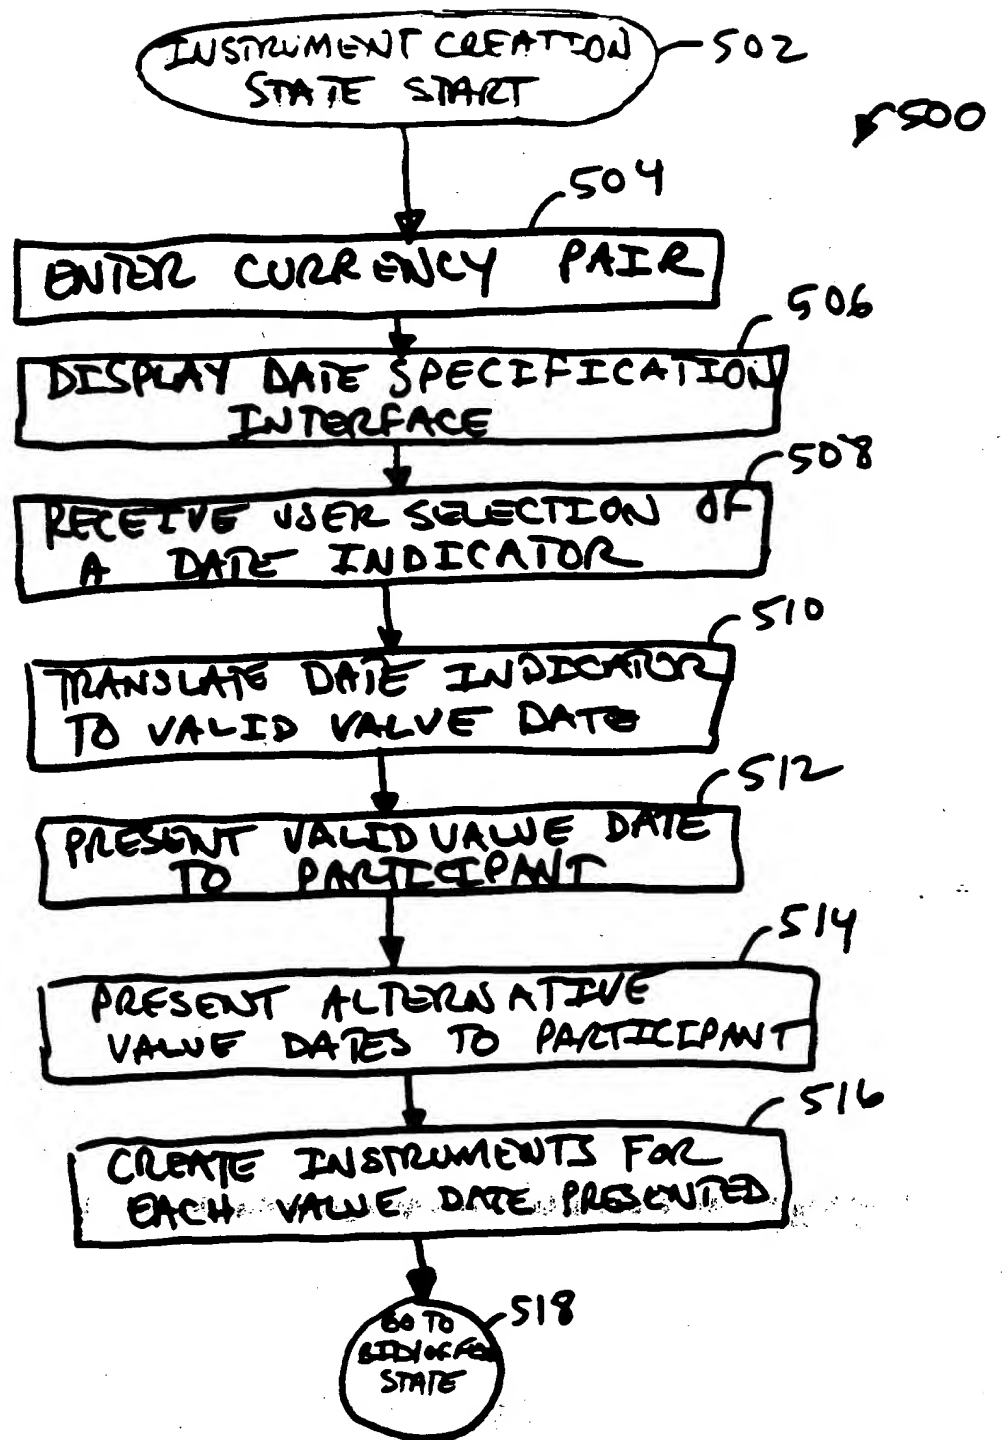 INSTRUMENT CREATION
STATE START
502
500
504
ENTER CURRENCY PAIR
506
DISPLAY DATE SPECIFICATION
INTERFACE
508
RECEIVE USER SELECTION OF
A DATE INDICATOR
510
TRANSLATE DATE INDICATOR
TO VALID VALUE DATE
512
PRESENT VALID VALUE DATE
TO PARTICIPANT
514
PRESENT ALTERNATIVE
VALUE DATES TO PARTICIPANT
516
CREATE INSTRUMENTS FOR
EACH VALUE DATE PRESENTED
518
GO TO
BID/OFFER
STATE